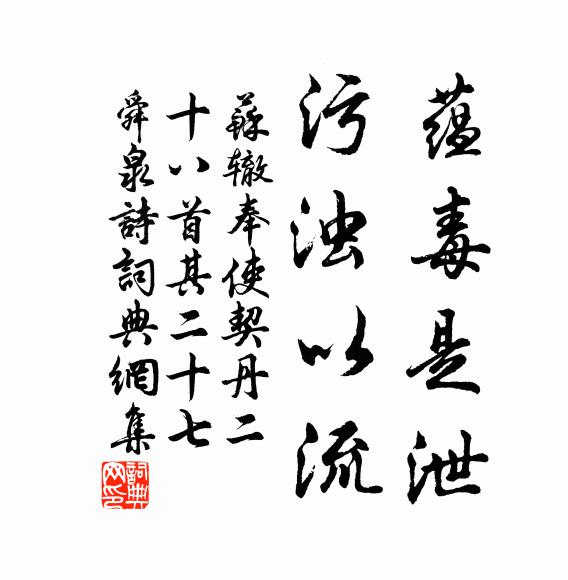 蕴毒是泄
污浊以流
蘇辙奉使契丹二
十八首其二十七
舜泉詩詞典網集
詞典网印